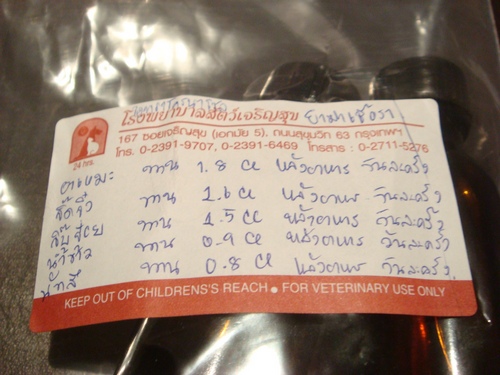 โรงพยาบาลสัตว์เจริญสุข ยาฆ่าเชื้อรา
167 ซอยเจริญสุข (เอกมัย 5), ถนนสุขุมวิท 63 กรุงเทพฯ
โทร. 0-2391-9707, 0-2391-6469 โทรสาร : 0-2711-5276
24 hrs.
ทาน 1.8 cc หลังอาหาร วันละครั้ง
ทาน 1.6 cc หลังอาหาร วันละครั้ง
ทาน 1.5 cc หลังอาหาร วันละครั้ง
ทาน 0.9 cc หลังอาหาร วันละครั้ง
ทาน 0.8 cc หลังอาหาร วันละครั้ง
KEEP OUT OF CHILDRENS'S REACH ● FOR VETERINARY USE ONLY